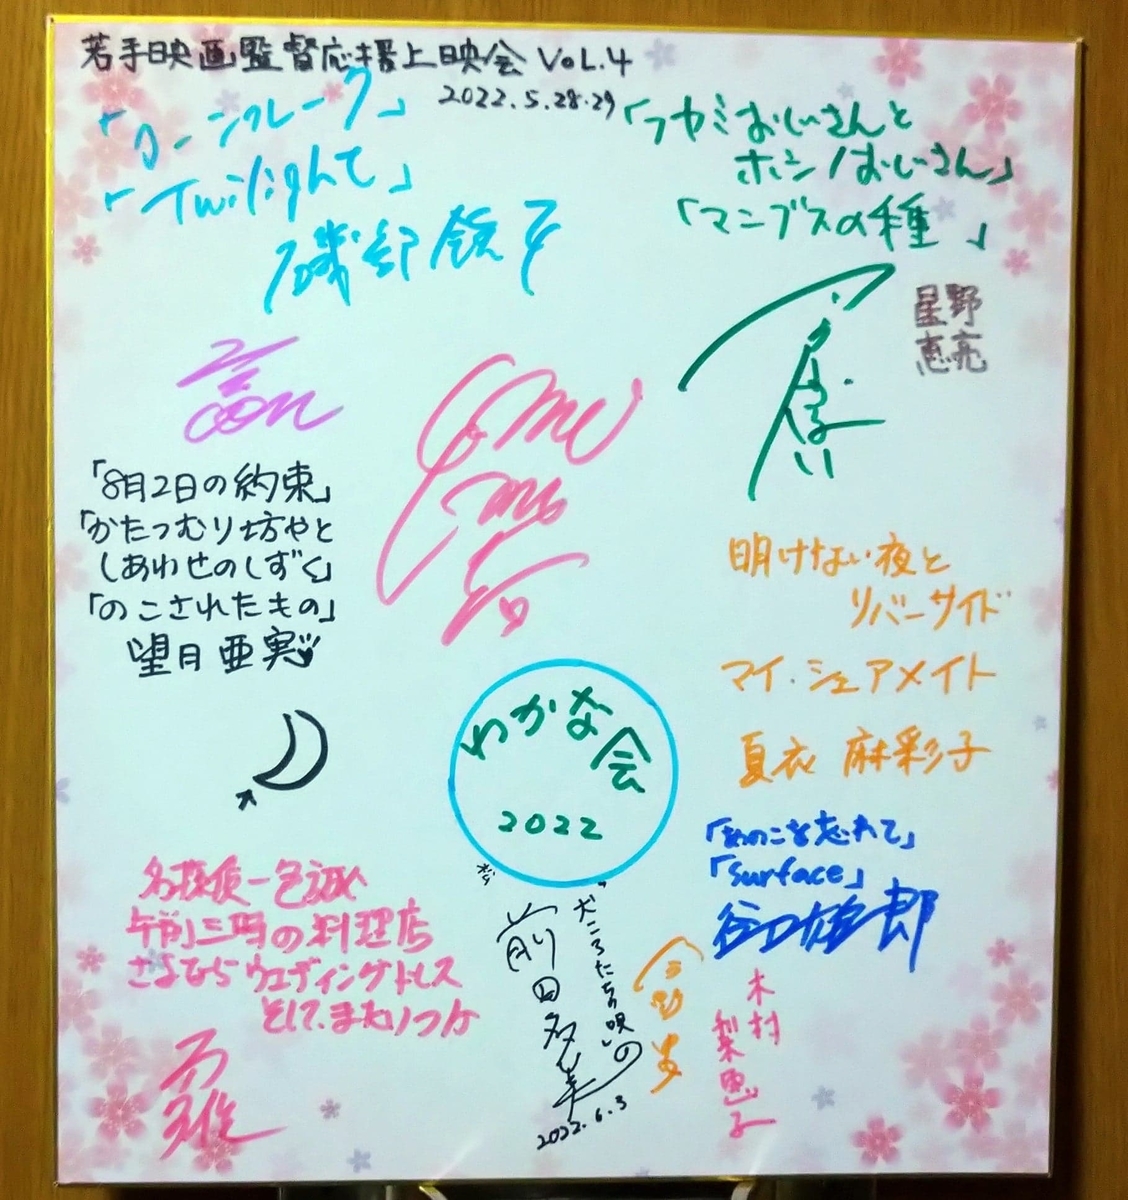 若手映画監督応援上映会 VOL.4
2022.5.28・29
「ワーンフレーク」
「Twilight」
磯部鉄平
「フカミおじいさんと
ホシノおじいさん」
「マニブスの種」
星野
恵亮
「8月2日の約束」
「かたつむり坊やと
しあわせのしずく」
「のこされたもの」
望月亜実
明けない夜と
リバーサイド
マイ・シェアメイト
夏衣 麻彩子
わかな会
2022
「あのこを忘れて」
「Surface」
谷口雄一郎
名探偵一色
午前三時の料理店
さよならウェディングドレス
そして、またいつか
"犬ころたちの唄"の
前田多美
2022.6.3
木村
梨恵子